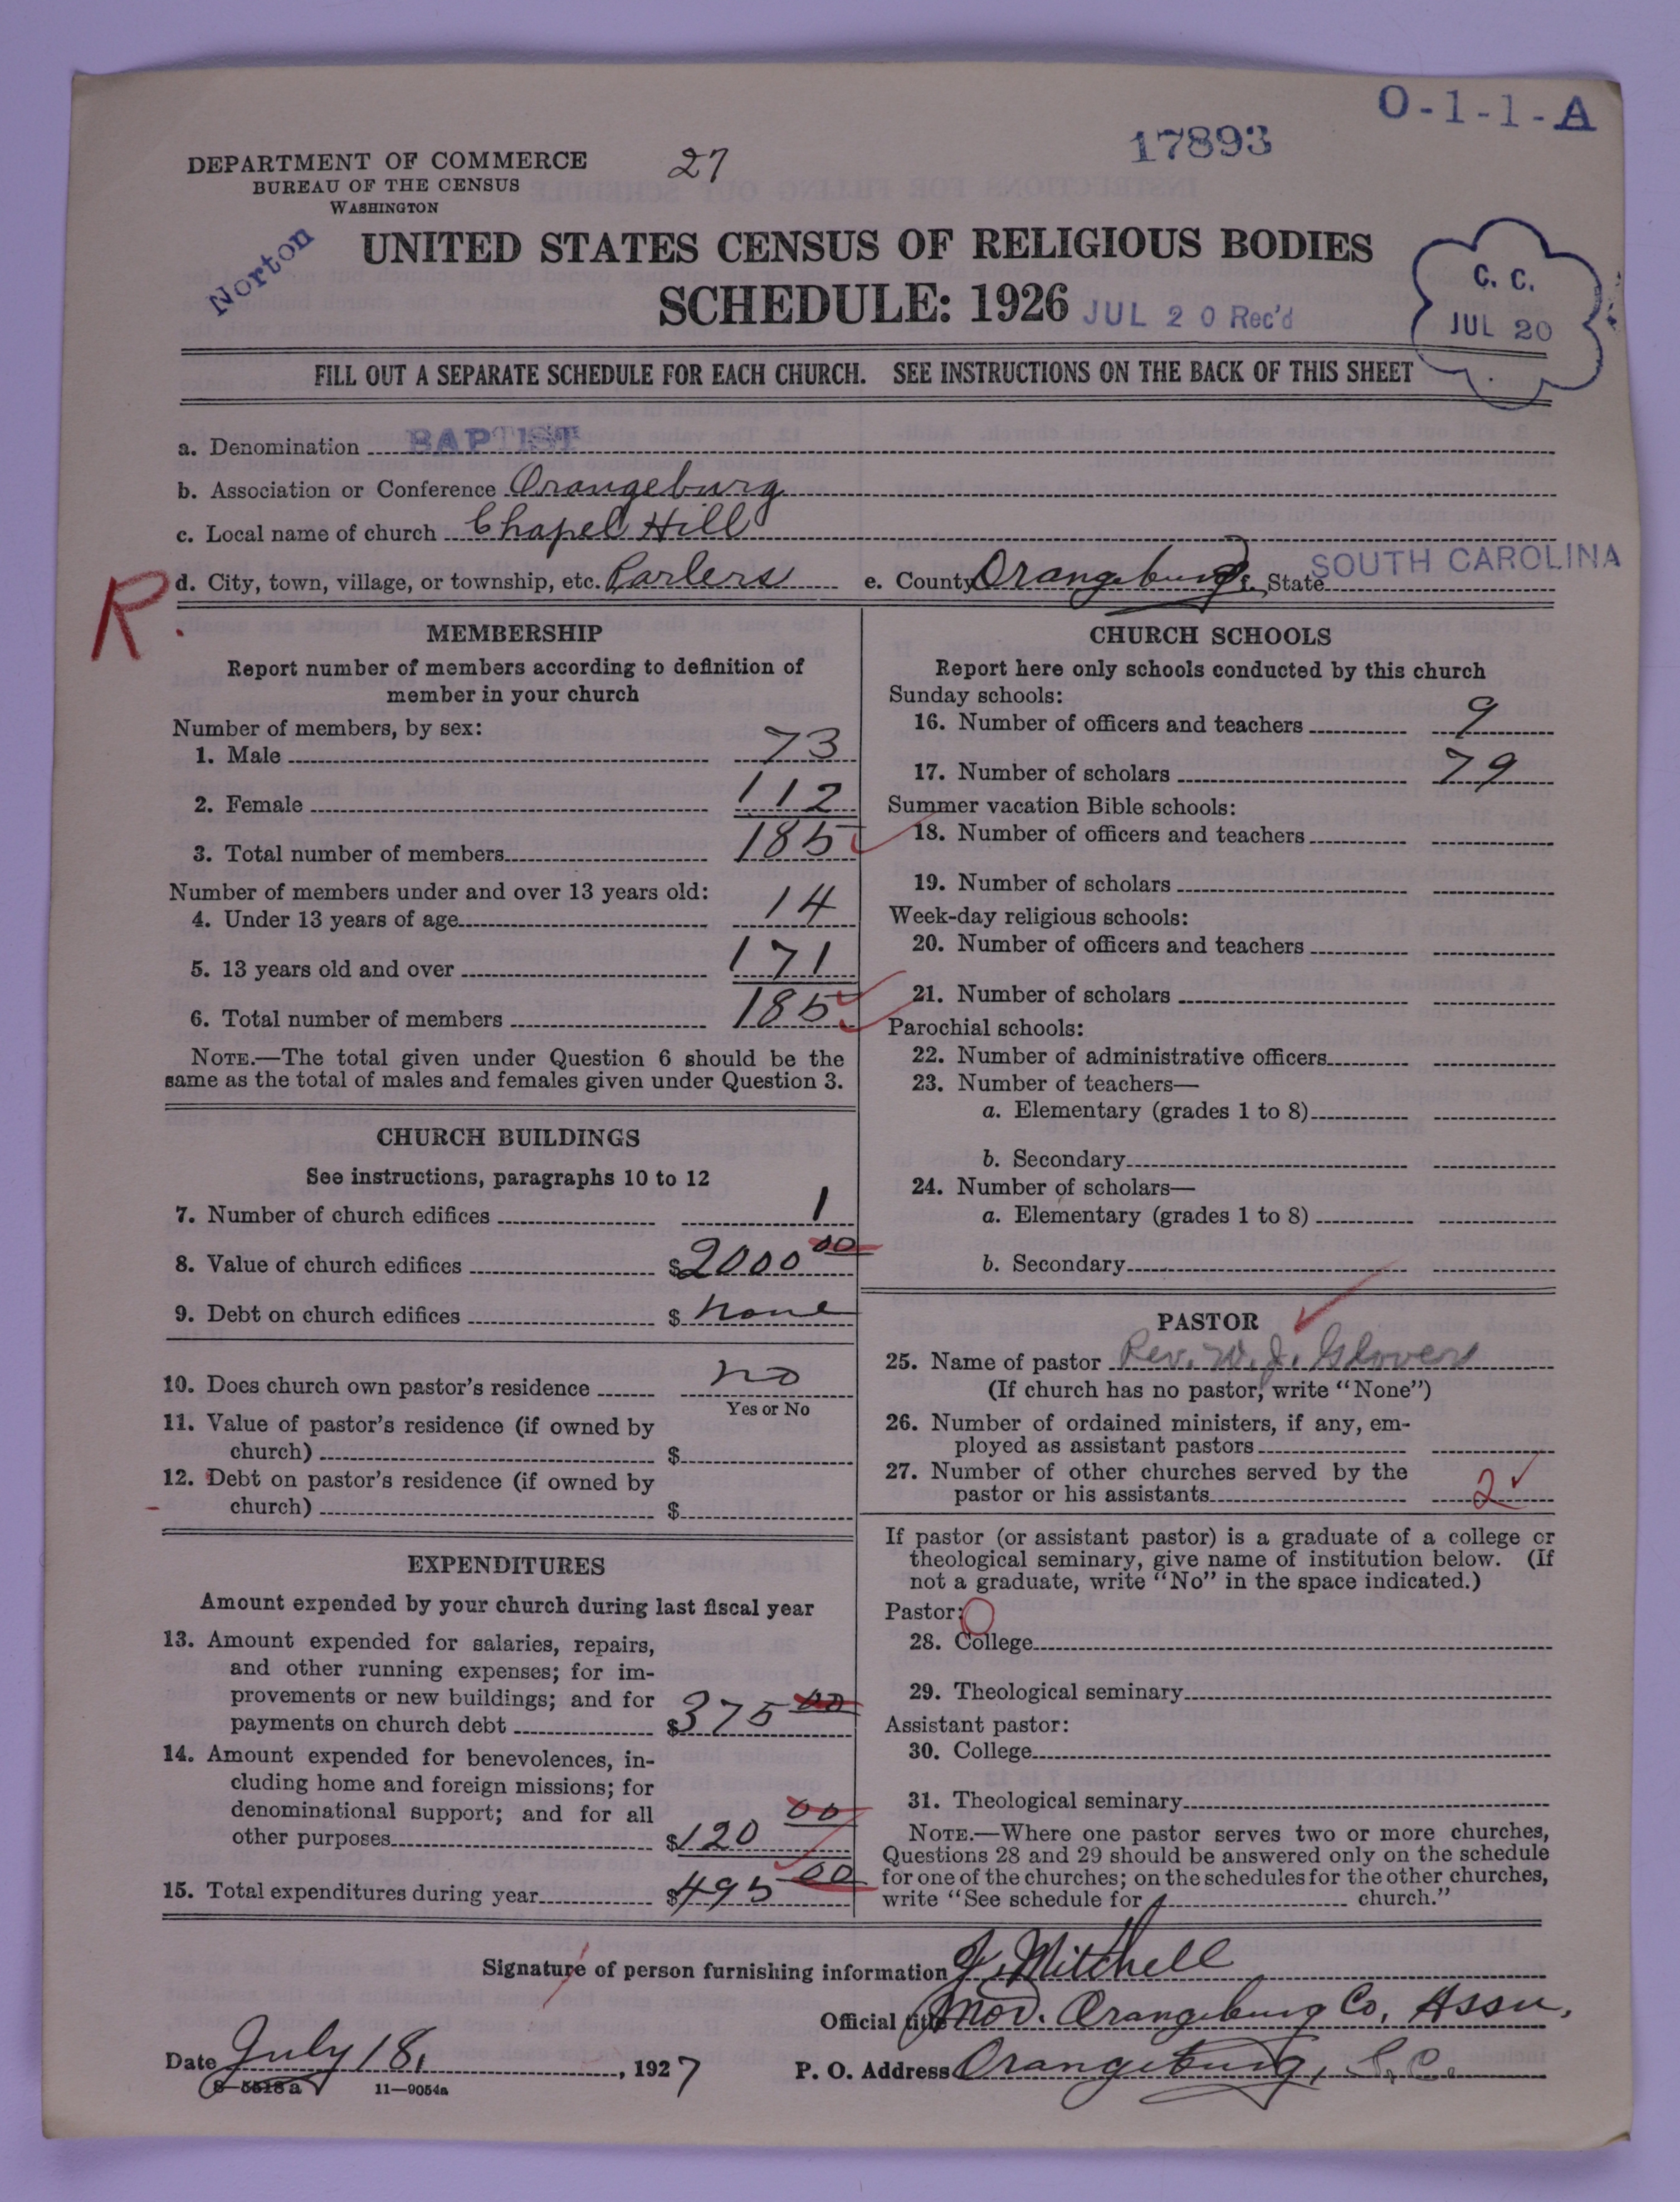 O-1-1-A
17893
27
DEPARTMENT OF COMMERCE
BUREAU OF THE CENSUS
WASHINGTON
Norton
UNITED STATES CENSUS OF RELIGIOUS BODIES
SCHEDULE: 1926
JUL 20 Rec'd
C. C.
JUL 20
FILL OUT A SEPARATE SCHEDULE FOR EACH CHURCH. SEE INSTRUCTIONS ON THE BACK OF THIS SHEET
a. Denomination BAPTIST
b. Association or Conference Orangeburg
c. Local name of church Chapel Hill
d. City, town, village, or township, etc. Parlers e. County Orangeburg f. State SOUTH CAROLINA
R.
MEMBERSHIP
Report number of members according to definition of
member in your church
Number of members, by sex:
1. Male 73
2. Female 112
3. Total number of members 185
Number of members under and over 13 years old:
4. Under 13 years of age 14
5. 13 years old and over 171
6. Total number of members 185
NOTE.—The total given under Question 6 should be the
same as the total of males and females given under Question 3.
CHURCH BUILDINGS
See instructions, paragraphs 10 to 12
7. Number of church edifices 1
8. Value of church edifices $2000 00
9. Debt on church edifices $ none
10. Does church own pastor's residence no
Yes or No
11. Value of pastor's residence (if owned by
church) $
12. Debt on pastor's residence (if owned by
church) $
EXPENDITURES
Amount expended by your church during last fiscal year
13. Amount expended for salaries, repairs,
and other running expenses; for im-
provements or new buildings; and for
payments on church debt $375 00
14. Amount expended for benevolences, in-
cluding home and foreign missions; for
denominational support; and for all
other purposes $120 00
15. Total expenditures during year $495 00
CHURCH SCHOOLS
Report here only schools conducted by this church
Sunday schools:
16. Number of officers and teachers 9
17. Number of scholars 79
Summer vacation Bible schools:
18. Number of officers and teachers
19. Number of scholars
Week-day religious schools:
20. Number of officers and teachers
21. Number of scholars
Parochial schools:
22. Number of administrative officers
23. Number of teachers—
a. Elementary (grades 1 to 8)
b. Secondary
24. Number of scholars—
a. Elementary (grades 1 to 8)
b. Secondary
PASTOR
25. Name of pastor Rev. W. J. Glover
(If church has no pastor, write "None")
26. Number of ordained ministers, if any, em-
ployed as assistant pastors
27. Number of other churches served by the
pastor or his assistants 2
If pastor (or assistant pastor) is a graduate of a college or
theological seminary, give name of institution below. (If
not a graduate, write "No" in the space indicated.)
Pastor: O
28. College
29. Theological seminary
Assistant pastor:
30. College
31. Theological seminary
NOTE.—Where one pastor serves two or more churches,
Questions 28 and 29 should be answered only on the schedule
for one of the churches; on the schedules for the other churches,
write "See schedule for church."
Signature of person furnishing information J. Mitchell
Official title Mod. Orangeburg Co. Assn.
Date July 18, 1927 P. O. Address Orangeburg, S. C.
8-5518a 11-9054a